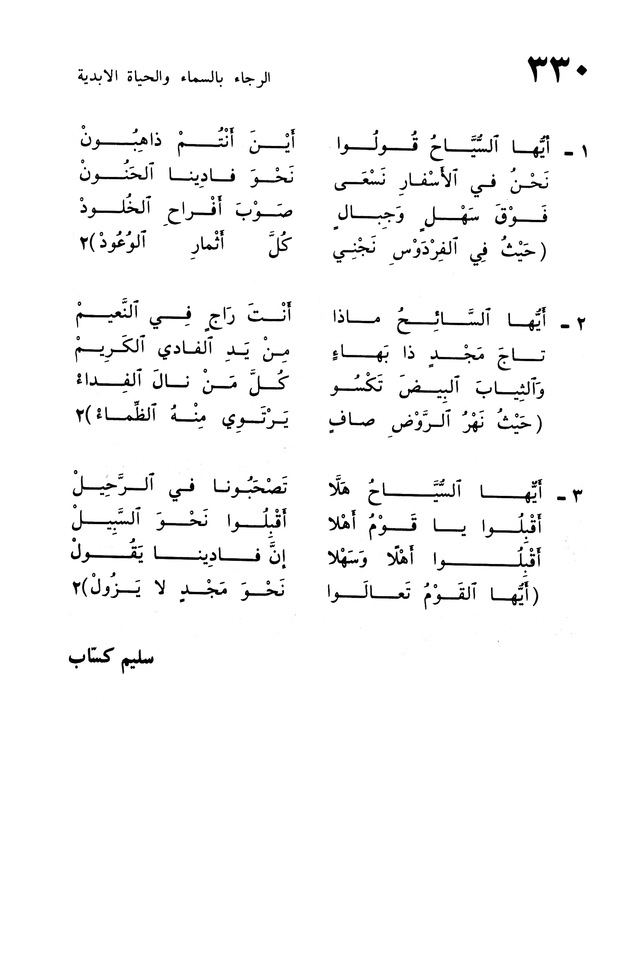 ٣٣٠ الرجاء بالسماء والحياة الابدية
١ ـ أَيُّها ٱلسُّيَّاحُ قُولُوا أَيْنَ أَنْتُمْ ذاهِبُونْ
نَحْنُ في ٱلأَسْفارِ نَسْعَى نَحْوَ فادِينا ٱلحَنُونْ
فَوْقَ سَهْلٍ وَجِبالٍ صَوْبَ أَفْراحِ ٱلخُلودْ
(حَيْثُ فِي ٱلفِرْدَوْسِ نَجْنِي كُلَّ أَثْمارِ ٱلوُعُودْ)٢
٢ ـ أَيُّها ٱلسَّائِحُ ماذا أَنْتَ راجٍ فِي ٱلنَّعِيمْ
تاجَ مَجْدٍ ذا بَهاءٍ مِنْ يَدِ ٱلفادي ٱلكَرِيمْ
وَٱلثِيابَ ٱلبِيضَ تَكْسُو كُلَّ مَنْ نالَ ٱلفِداءْ
(حَيْثُ نَهْرُ ٱلرَّوْضِ صافٍ يَرْتَوِي مِنْهُ ٱلظِّماءْ)٢
٣ ـ أَيُّها ٱلسُّيَّاحُ هَلَّا تَصْحَبُونا في ٱلرَّحِيلْ
أَقْبِلُوا يا قَوْمُ أَهْلا أَقْبِلُوا نَحْوَ ٱلسَّبِيلْ
أَقْبِلُوا أَهْلًا وَسَهْلا إنَّ فادِينا يَقُولْ
(أَيُّها ٱلقَوْمُ تَعالَوا نَحْوَ مَجْدٍ لا يَزُولْ)٢
سليم كسّاب